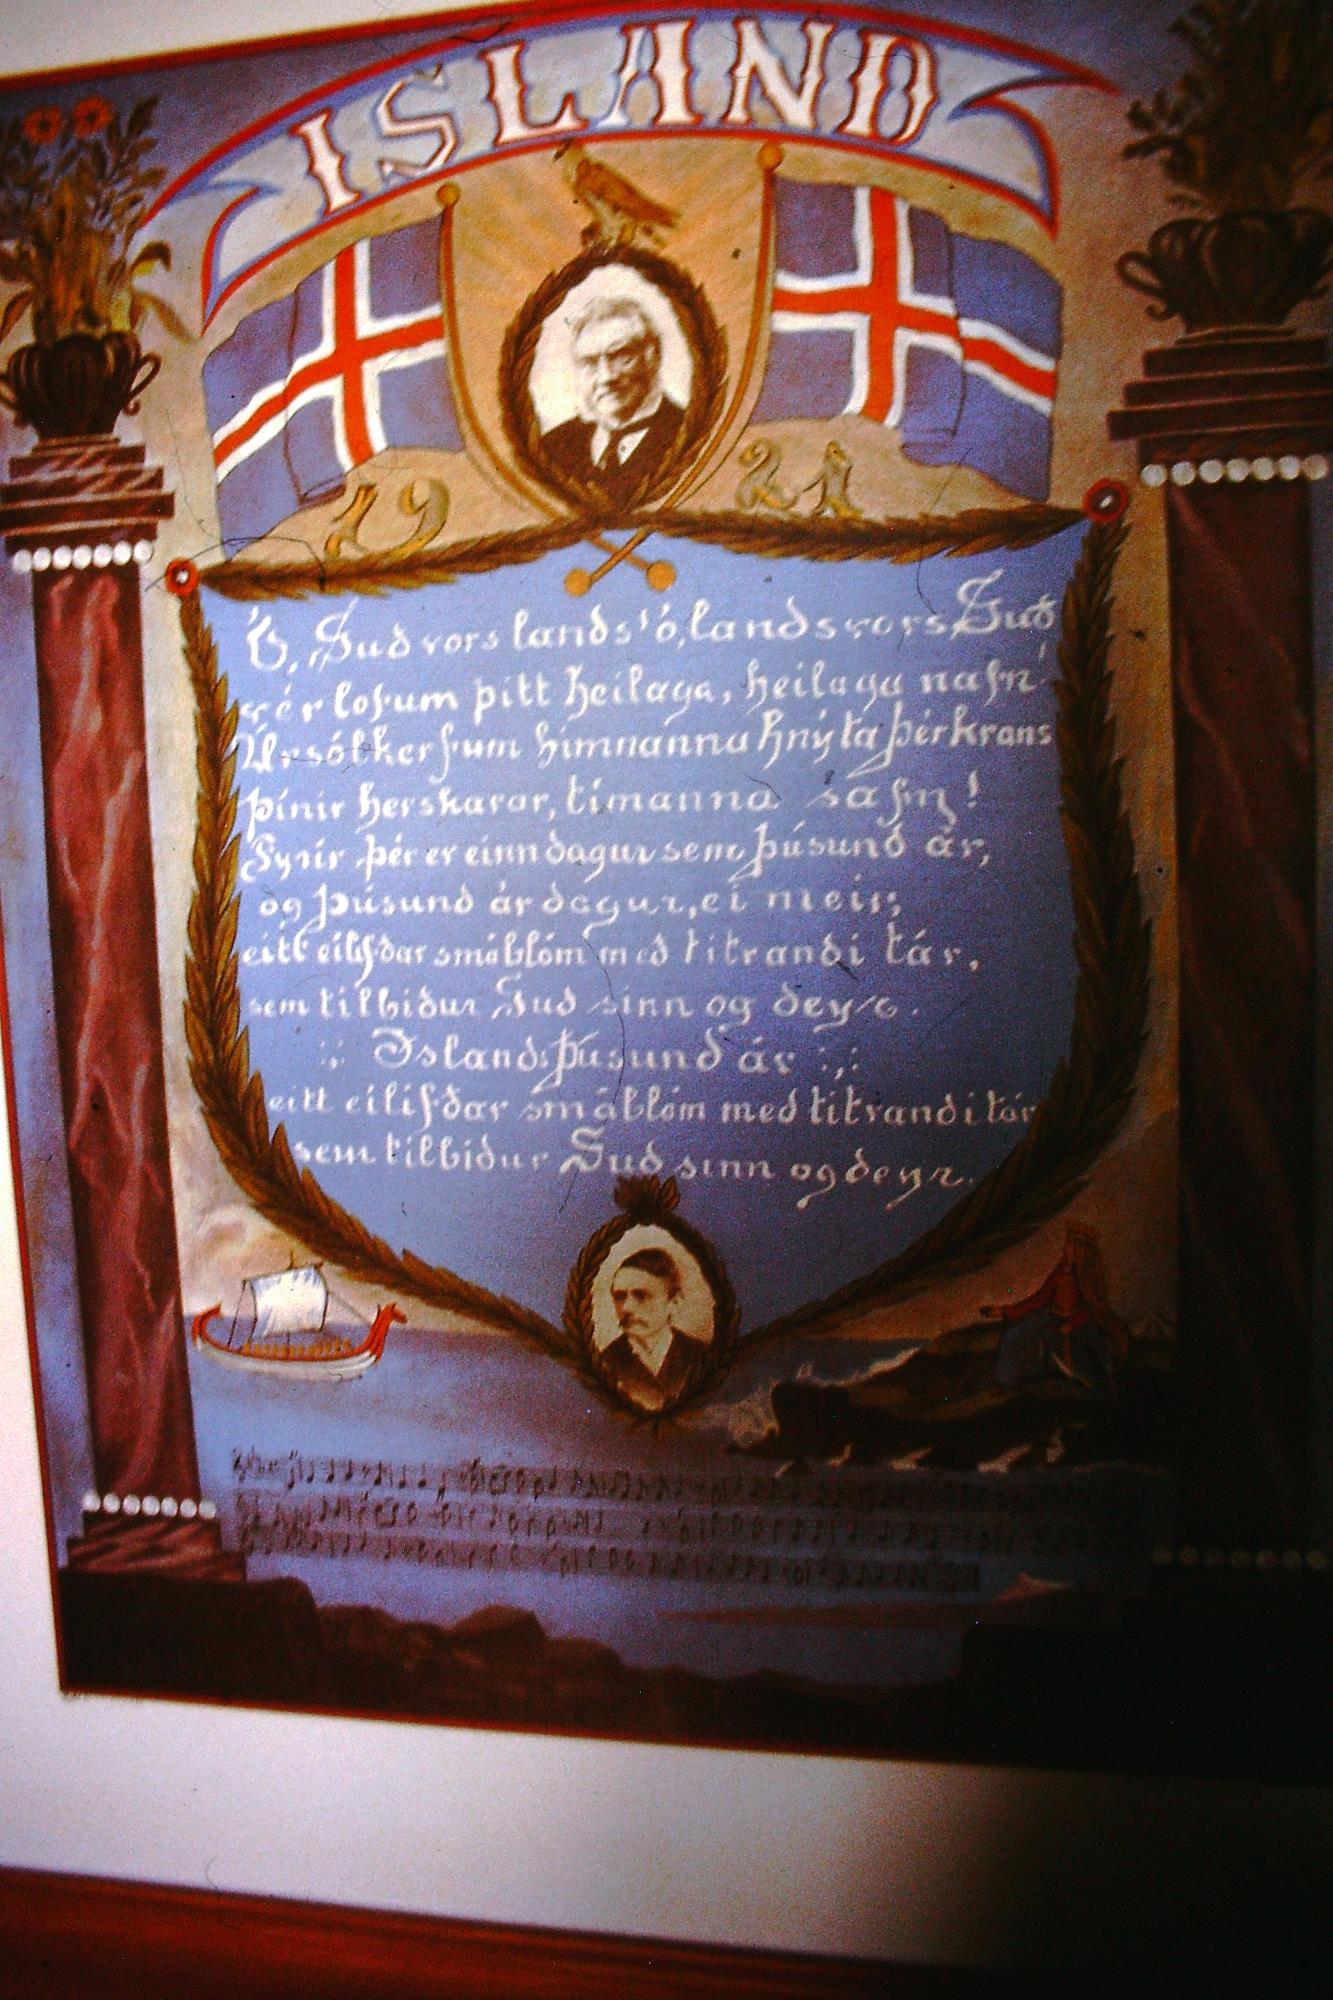 ISLAND
19 21
Ó, Guð vors lands! ó, lands vors Guð
vér lofum þitt heilaga, heilaga nafn!
Úr sólkerfum himnanna hnýta þér krans
þínir herskarar, tímanna safn!
Fyrir þér er einn dagur sem þúsund ár,
og þúsund ár dagur, ei meir;
eitt eilífðar smáblóm með titrandi tár,
sem tilbiður Guð sinn og deyr.
:,: Islands þúsund ár :,:
eitt eilífðar smáblóm með titrandi tár
sem tilbiður Guð sinn og deyr.